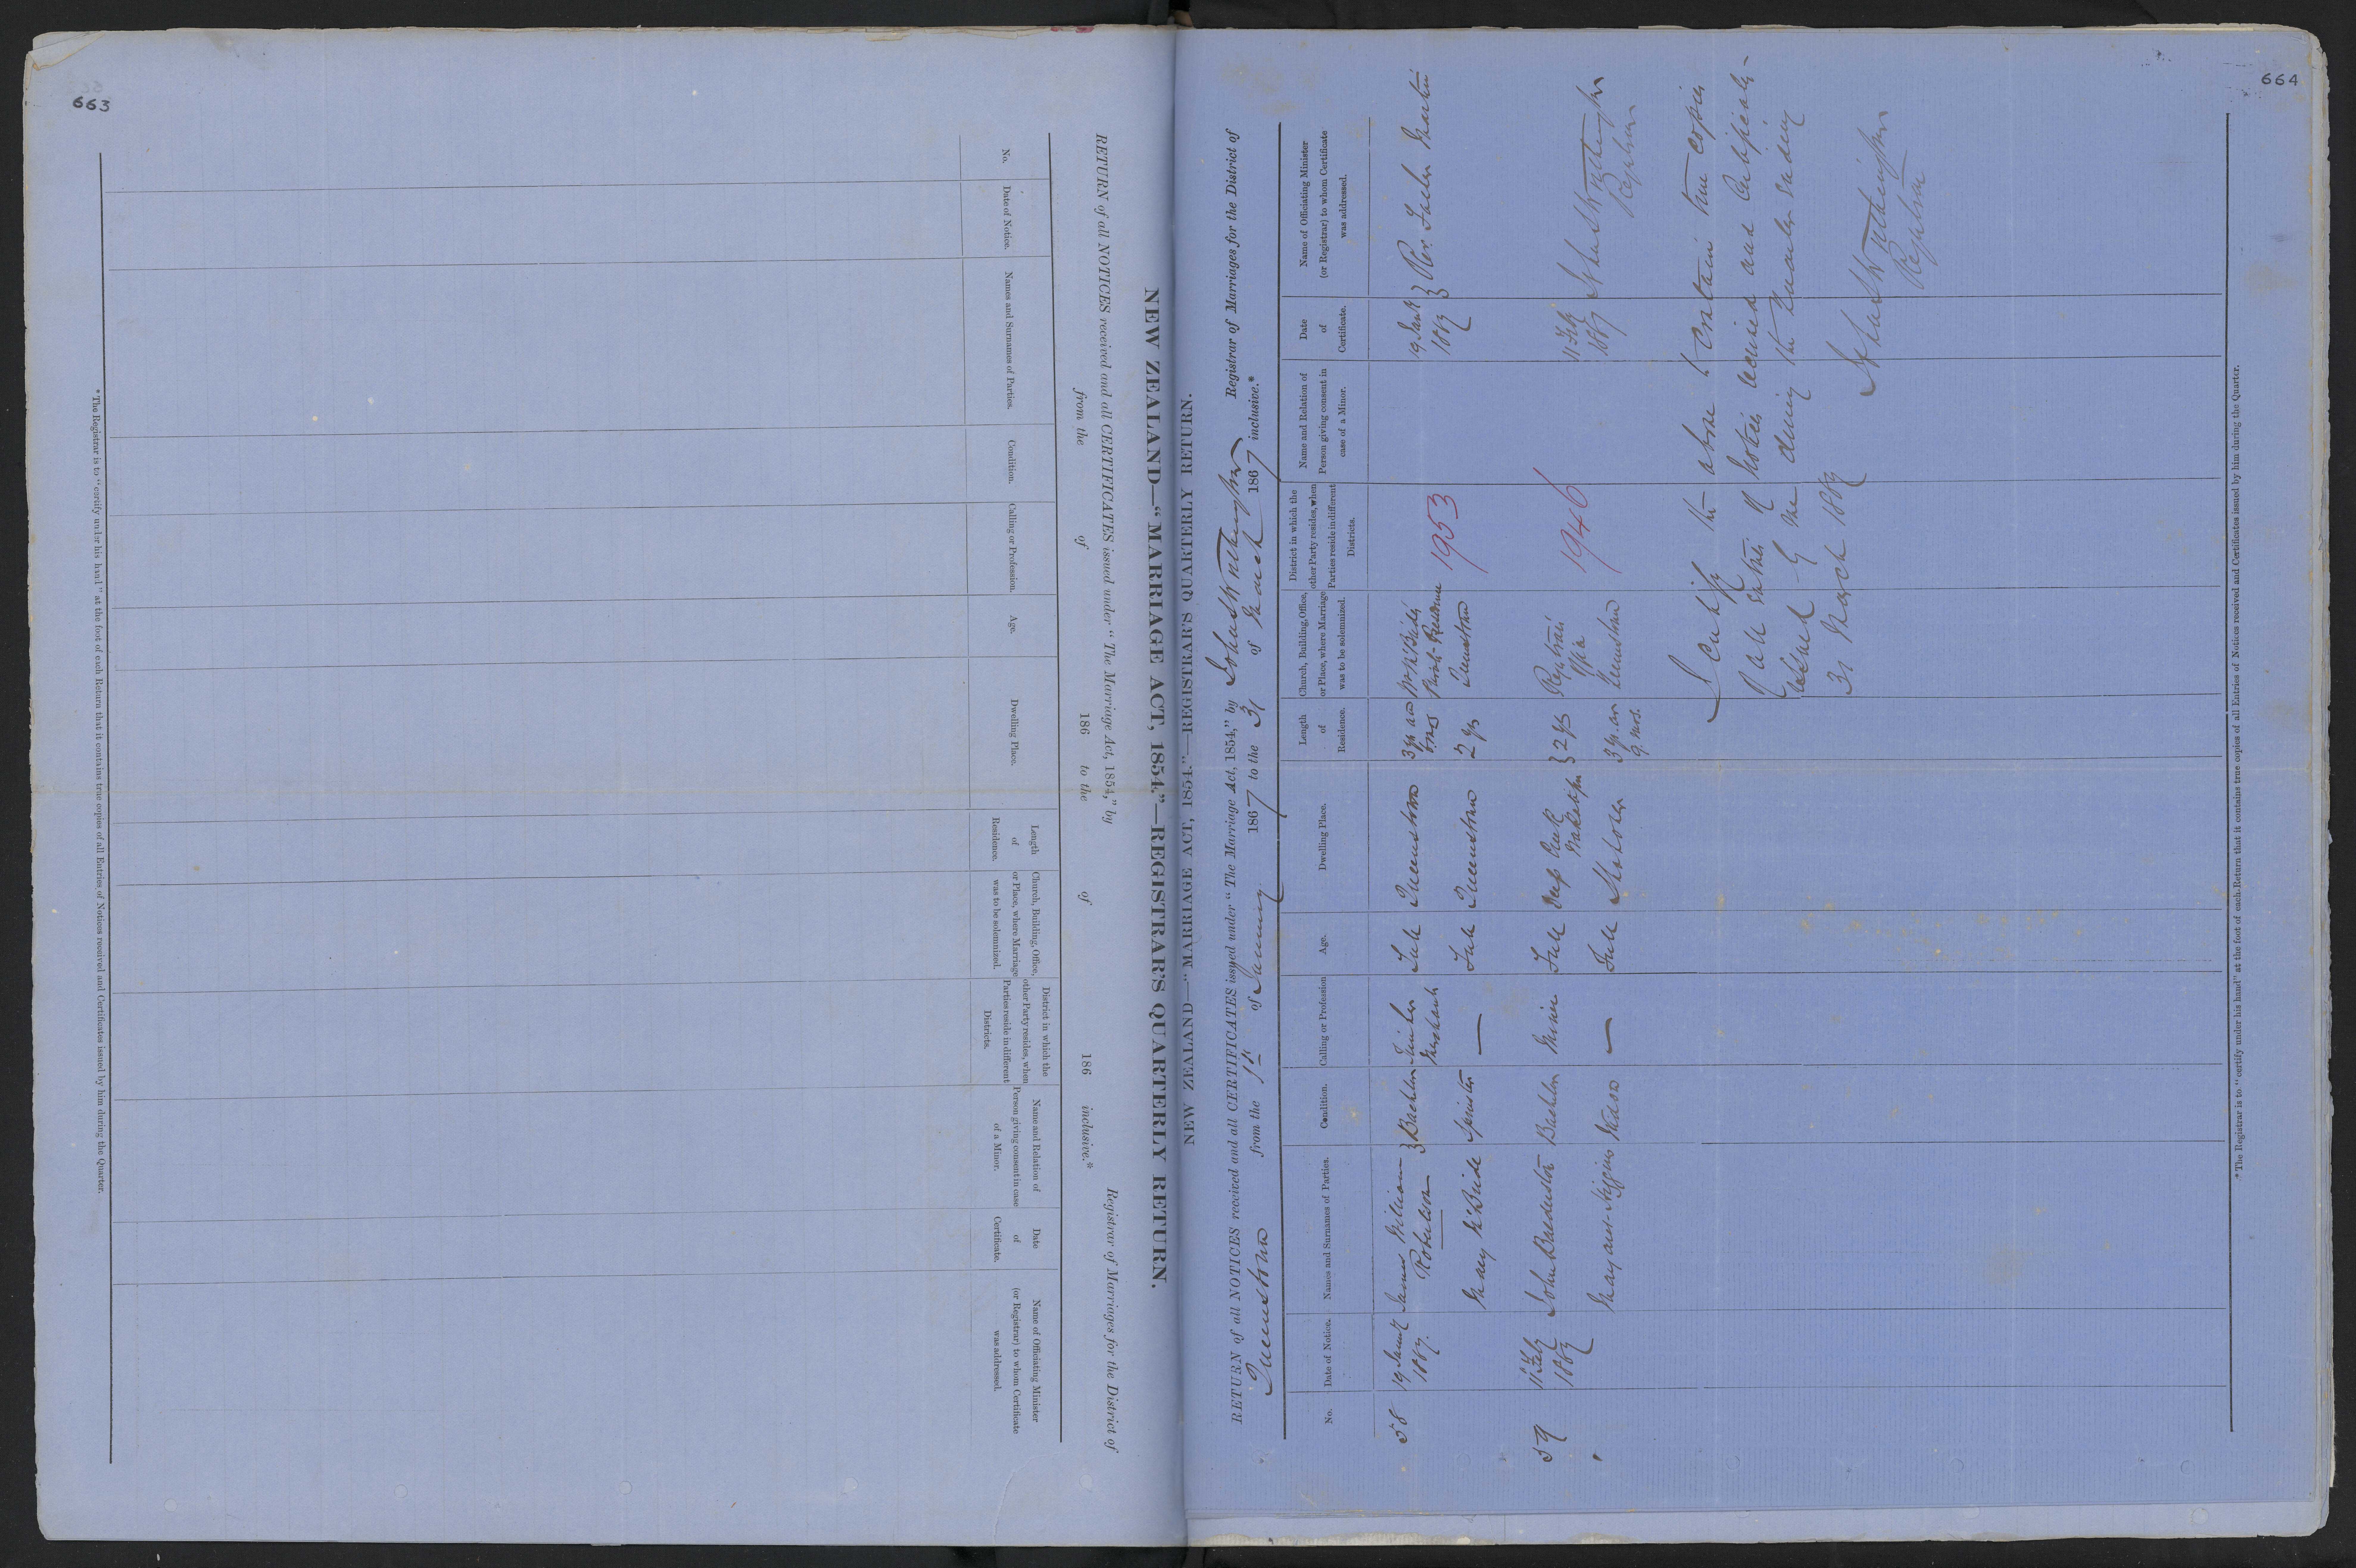 663
NEW ZEALAND—"MARRIAGE ACT, 1854."—REGISTRAR'S QUARTERLY RETURN.
RETURN of all NOTICES received and all CERTIFICATES issued under "The Marriage Act, 1854," by Registrar of Marriages for the District of
from the of 186 to the of 186 inclusive.*
No.
Date of Notice.
Names and Surnames of Parties.
Condition.
Calling or Profession.
Age.
Dwelling Place.
Length of Residence.
Church, Building, Office, or Place, where Marriage was to be solemnized.
District in which the other Party resides, when Parties reside in different Districts.
Name and Relation of Person giving consent in case of a Minor.
Date of Certificate.
Name of Officiating Minister (or Registrar) to whom Certificate was addressed.
* The Registrar is to "certify under his hand" at the foot of each Return that it contains true copies of all Entries of Notices received and Certificates issued by him during the Quarter.
664
NEW ZEALAND—"MARRIAGE ACT, 1854."—REGISTRAR'S QUARTERLY RETURN.
RETURN of all NOTICES received and all CERTIFICATES issued under "The Marriage Act, 1854," by Registrar of Marriages for the District of
Queenstown from the 1st of January 1867 to the 31 of March 1867 inclusive.*
No.
Date of Notice.
Names and Surnames of Parties.
Condition.
Calling or Profession
Age.
Dwelling Place.
Length of Residence.
Church, Building, Office, or Place, where Marriage was to be solemnized.
District in which the other Party resides, when Parties reside in different Districts.
Name and Relation of Person giving consent in case of a Minor.
Date of Certificate.
Name of Officiating Minister (or Registrar) to whom Certificate was addressed.
58 19 Jany 1867. James William Robertson Bachelor Timber Merchant Full Queenstown 3 yrs and Queenstown 1953 19 Jany 1867 Rev. Father Martin
Mary McBride Spinster — Full Queenstown 2 yrs
59 11 Feby 1867 John Bachelor Miner Full Deep Creek Wakatipu 2 yrs Registrar's Office Queenstown 1946 11 Feby 1867 Registrar
Mary Ann Higgins Widow — Full Shotover 3 yrs 9 mos.
I certify the above to contain true copies
of all entries of notices received and Certificates
issued by me during the Quarter ending
31 March 1867
Registrar
* The Registrar is to "certify under his hand" at the foot of each Return that it contains true copies of all Entries of Notices received and Certificates issued by him during the Quarter.